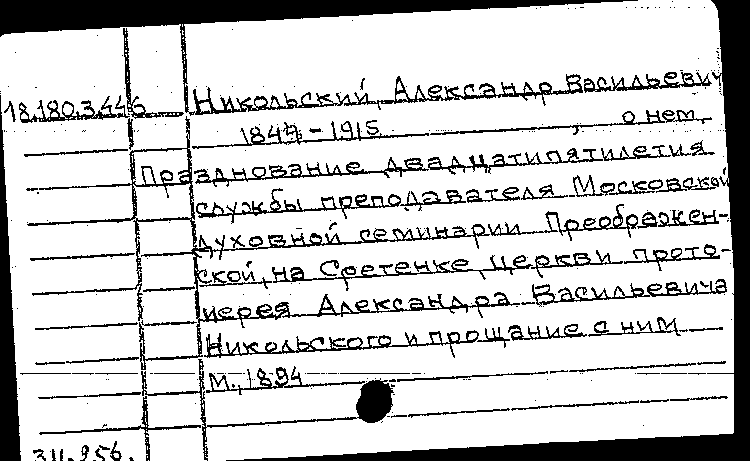 18.180.3.446 Никольский, Александр Васильевич
1844-1915, о нем.
Празднование двадцатипятилетия
службы преподавателя Московской
духовной семинарии Преображен-
ской, на Сретенке, церкви прото-
иерея Александра Васильевича
Никольского и прощание с ним
М., 1894
311.956.